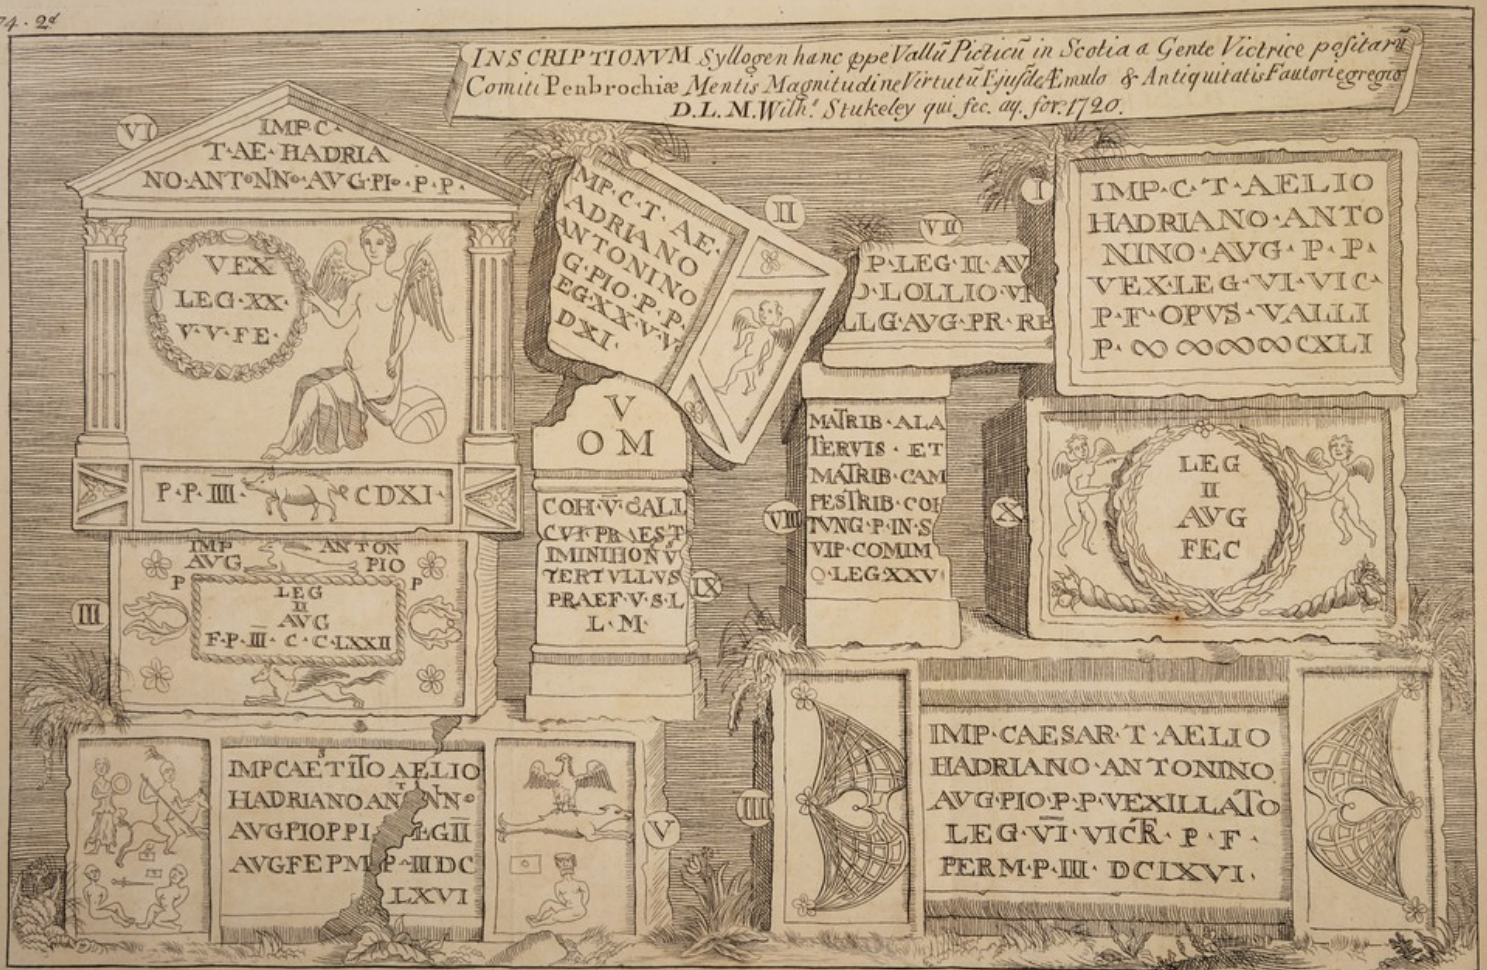 74. 2ᵈ
INSCRIPTIONVM Syllogen hanc ꝓpe Vallū Picticū in Scotia a Gente Victrice positarū
Comiti Penbrochiæ Mentis Magnitudine Virtutū Ejusdē Æmulo & Antiquitatis Fautori egregio
D.L.M. Wilhˢ Stukeley qui fec. aq. for. 1720.
VI
IMP·C·
T·AE·HADRIA
NO·ANTONNO·AVG·PIO·P·P·
VEX
LEG·XX·
V·V·FE·
P·P·III· CDXI·
II
MP·C·T·AE·
ADRIANO
ANTONINO
G·PIO·P·P·
EG·XX·V·V
DXI·
VII
P·LEG·II·AV
LOLLIO·VR
LLG·AVG·PR·RE
I
IMP·C·T·AELIO
HADRIANO·ANTO
NINO·AVG·P·P·
VEX·LEG·VI·VIC·
P·F·OPVS·VALLI
P·∞∞∞∞CXLI
III
IMP ANTON
AVG PIO
P P
LEG
II
AVG
F·P·III·C·C·LXXII
V
OM
IX
COH·V̄·GALL
CVI·PRAEST
IMINIHON V
TERTVLLVS
PRAEF·V·S·L
L·M·
VIII
MATRIB·ALA
TERVIS·ET
MATRIB·CAM
PESTRIB·COH
TVNG·P·IN·S
VIP·COMIM
Q·LEGXXV
X
LEG
II
AVG
FEC
V
IMPCAETITO AELIO
HADRIANO ANTONNO
AVGPIOPPI LEGII
AVGFEPM P·IIIDC
LXVI
IIII
IMP·CAESAR·T·AELIO
HADRIANO·ANTONINO
AVG·PIO·P·P·VEXILLATO
LEG·VI·VICTR·P·F·
PERM·P·III·DCIXVI·